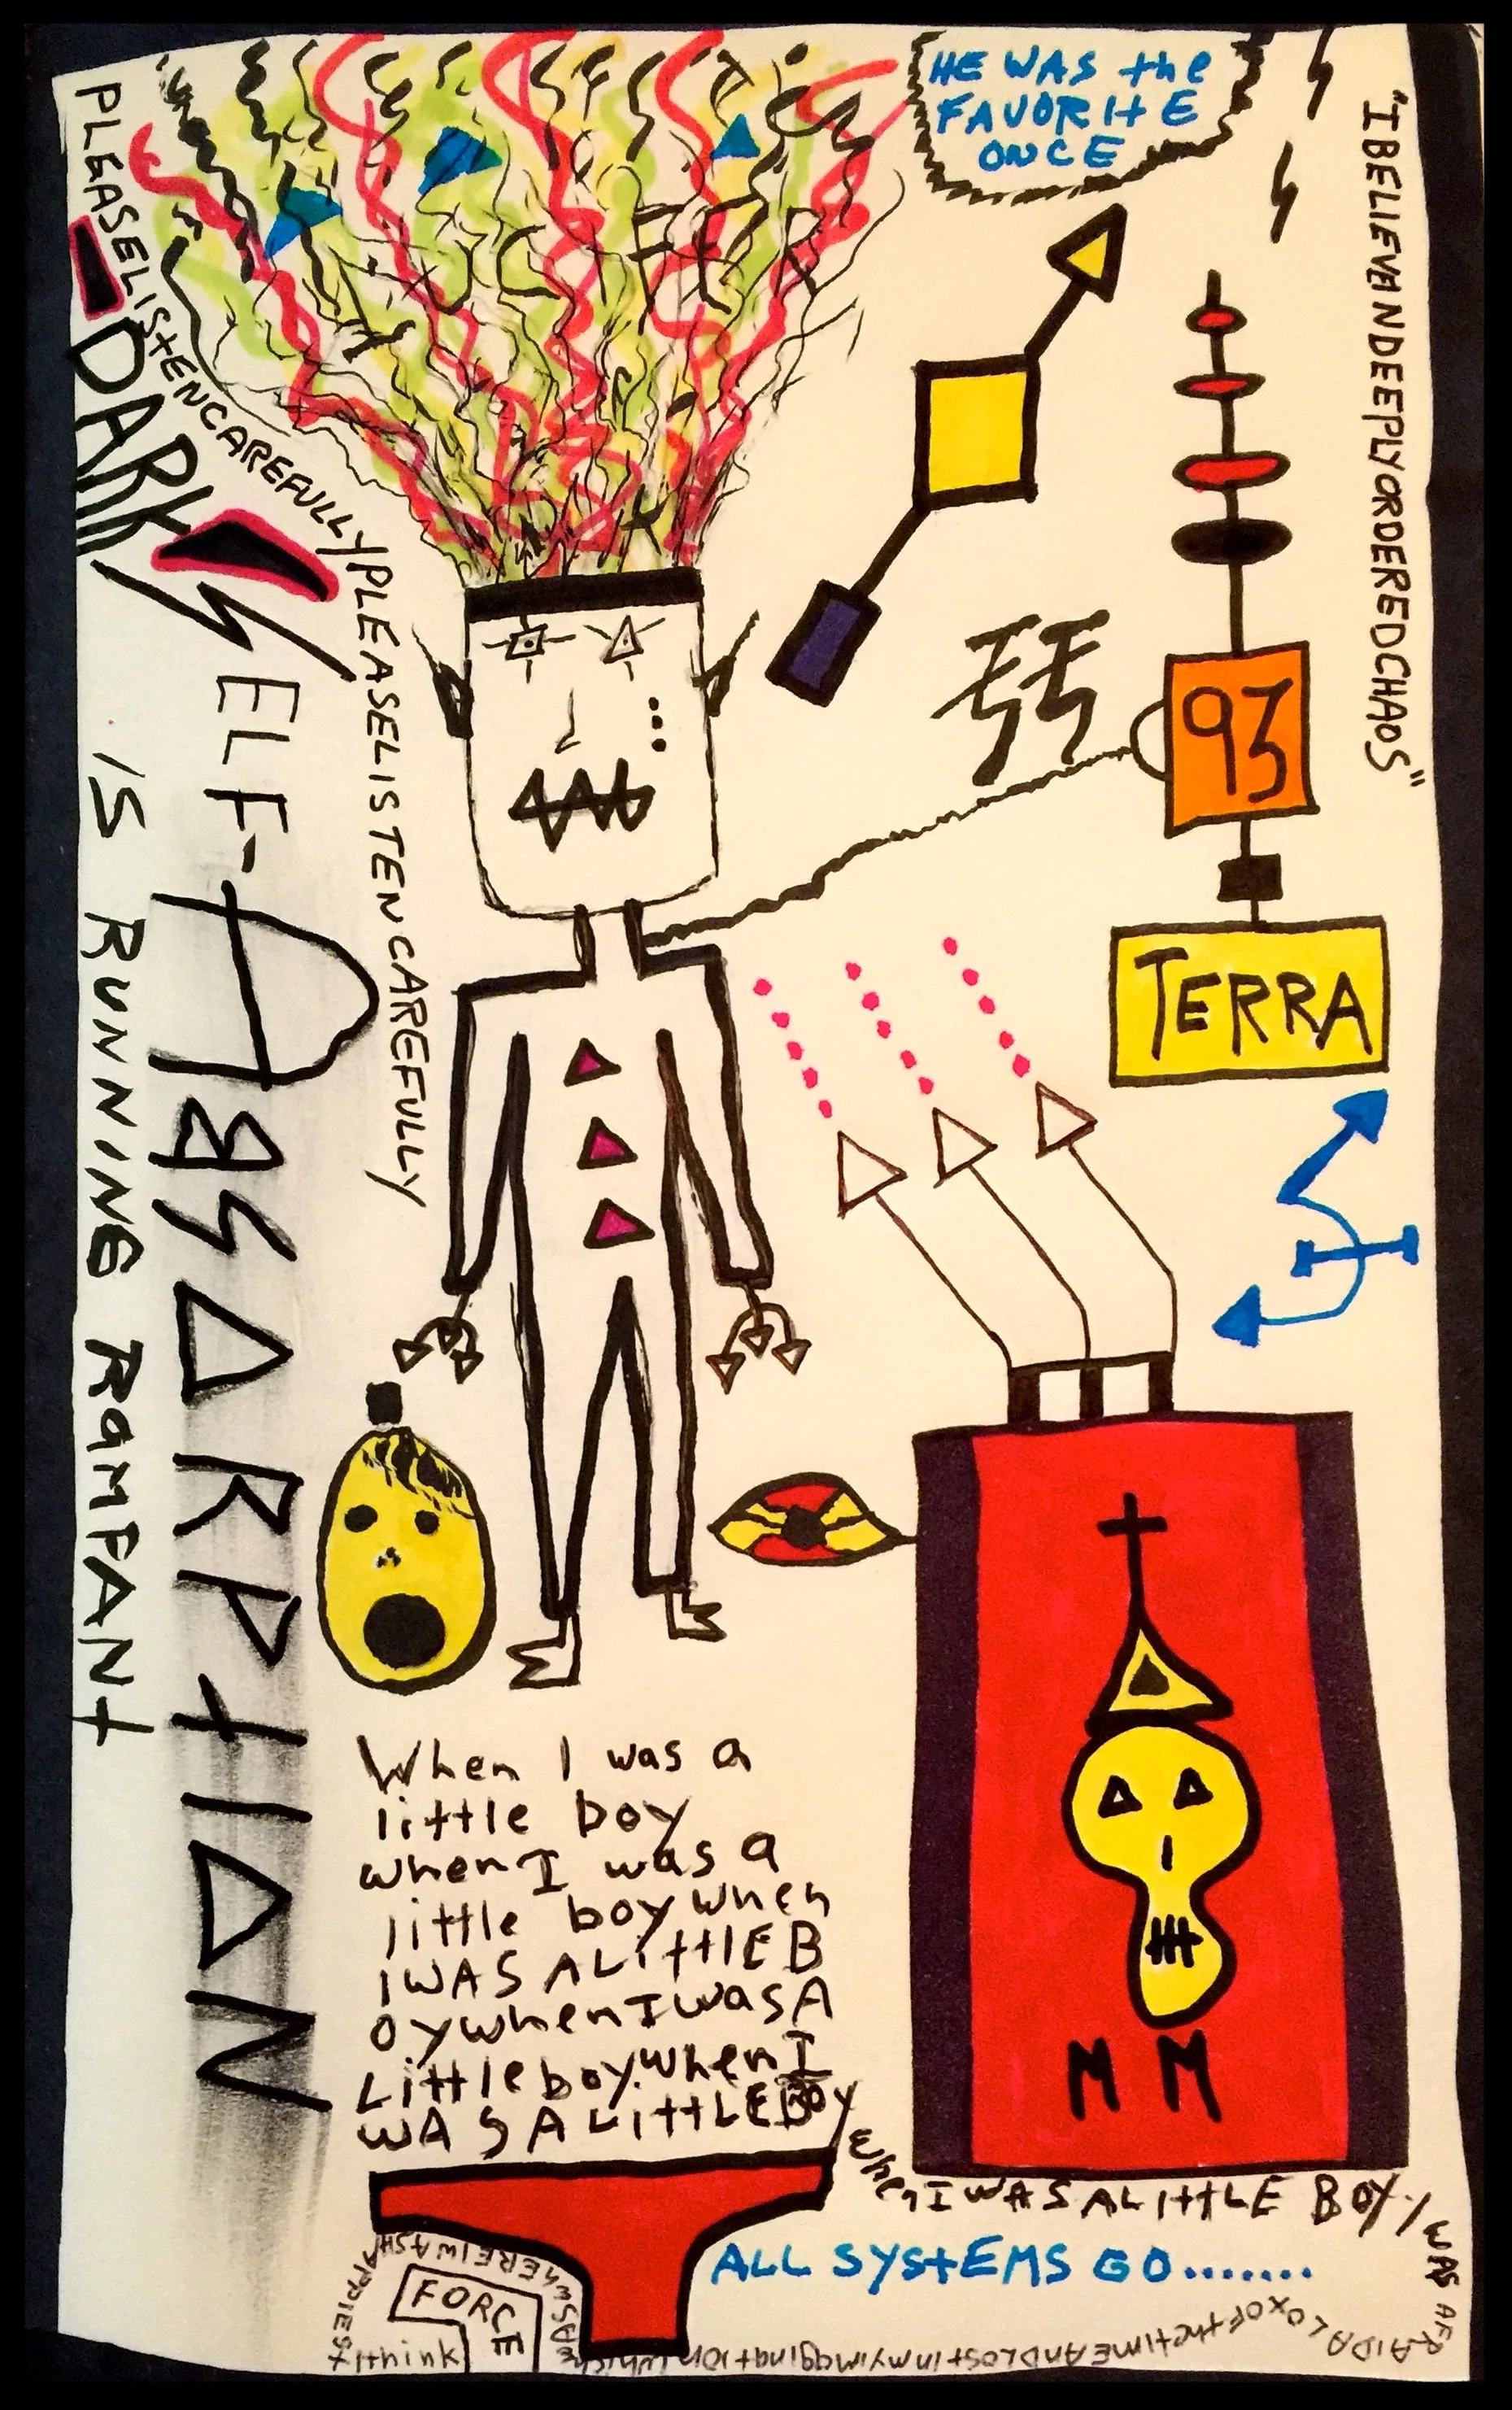 HE WAS the
FAVORItE
ONCE
"IBELIEVEANDEEPLYORDEREDCHAOS"
PLEASELIStENCAREFULLY/PLEASELISTENCAREFULLY
DARK SELF-ABSORPtION
IS RUNNING RaMPANt
93
TERRA
When I was a
little boy
when I was a
little boy when
I WAS A LittlE B
oy when I was A
Little boy. When I
WAS A LittLE BOY
when I WAS A LIttLE BOY, I WAS AFRAID A LOt OF the tIME AND Lost in my imagination which WAS whERE I WAS HAPPIESt I think
M M
ALL SYStEMS GO.......
FORCE